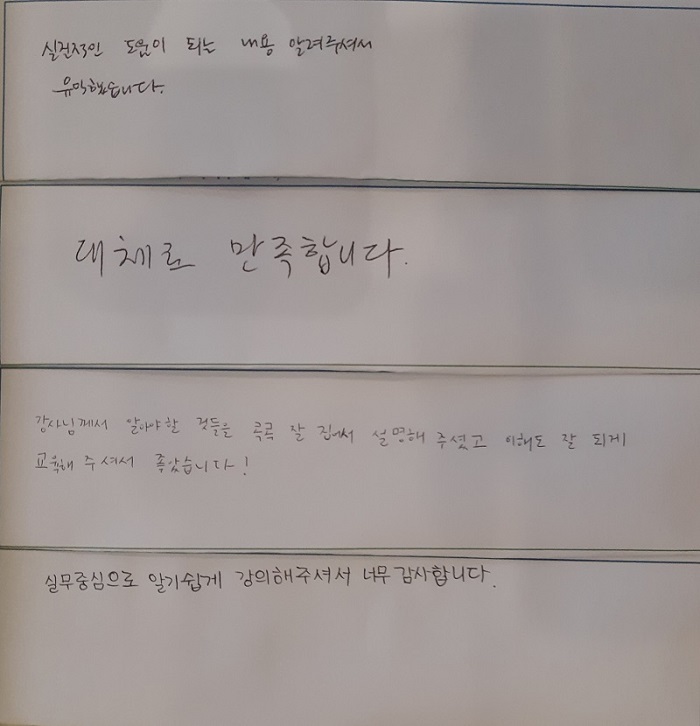 실전적인 도움이 되는 내용 알려주셔서
유익했습니다.
대체로 만족합니다.
강사님께서 알아야할 것들을 콕콕 잘 집어서 설명해 주셨고 이해도 잘 되게
교육해 주셔서 좋았습니다!
실무중심으로 알기쉽게 강의해주셔서 너무 감사합니다.